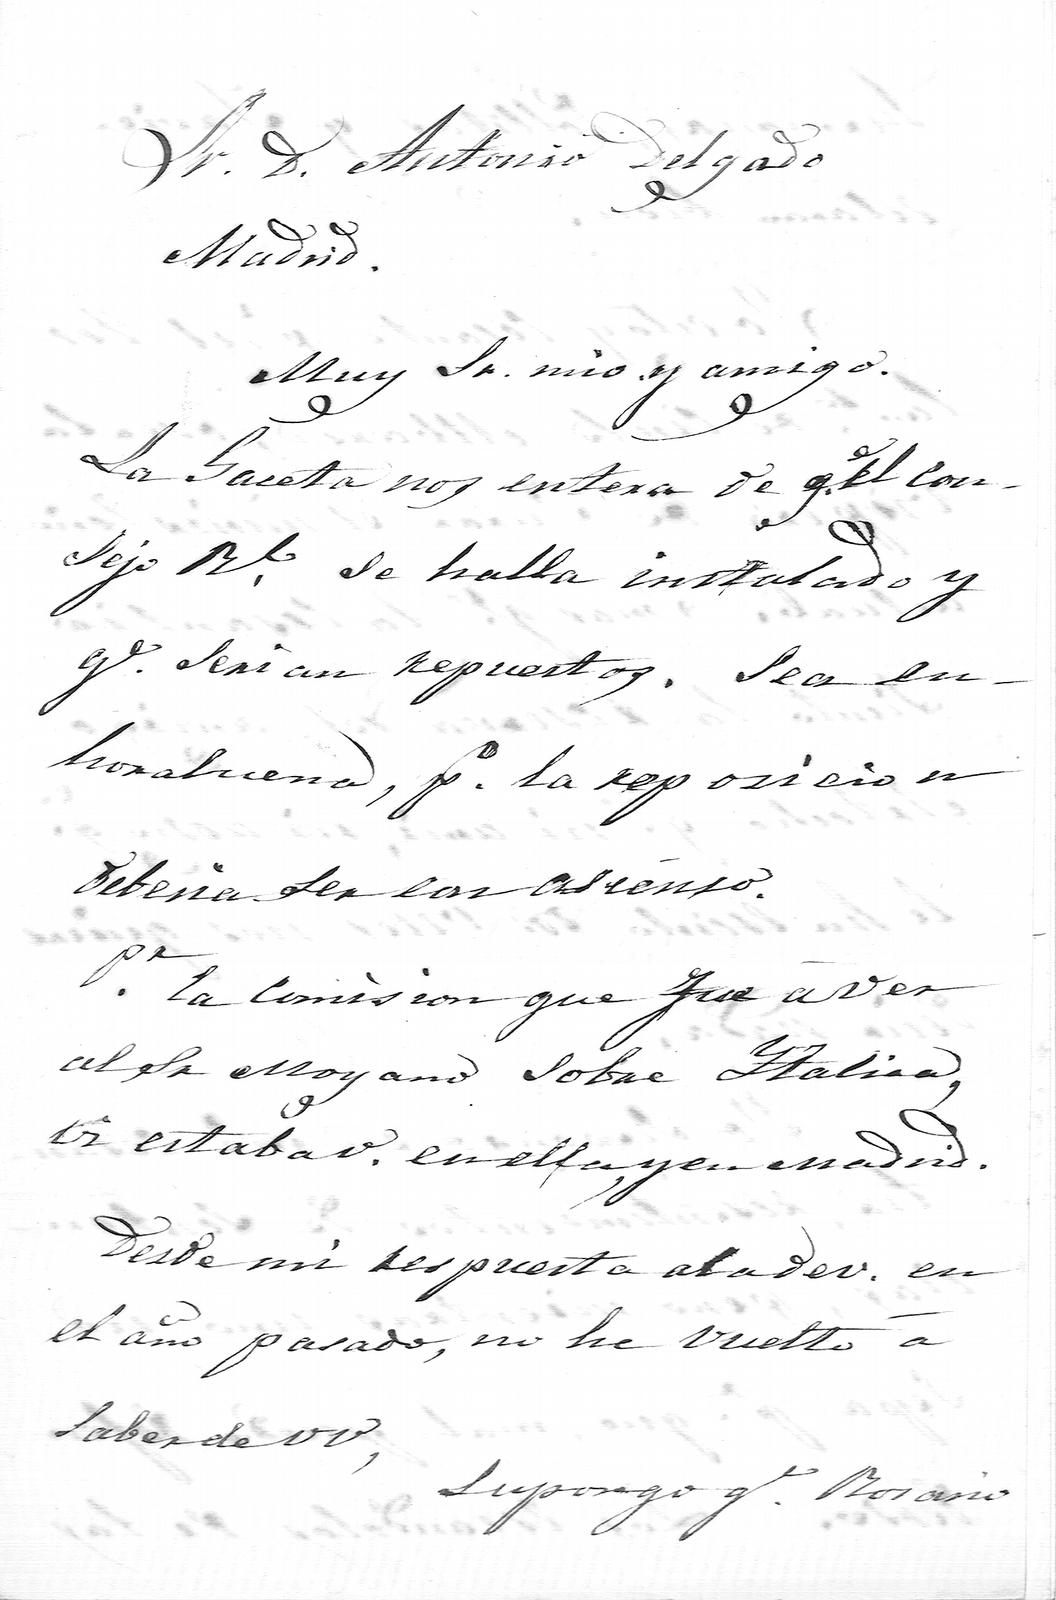 Sr. D. Antonio Delgado
Madrid.
Muy Sr. mio y amigo.
La Gaceta nos entera de qe el Con-
sejo Rl. se halla instalado y
qe. serian repuestos. Sea en-
horabuena, po. la reposicion
deberia ser con ascenso.
pr. la Comision que fue á ver
al Sr Moyano sobre Italica,
vi estaba v. en ella, y en Madrid.
Desde mi respuesta a la de v. en
el año pasado, no he vuelto á
saber de VV,
Supongo qe. Rosario